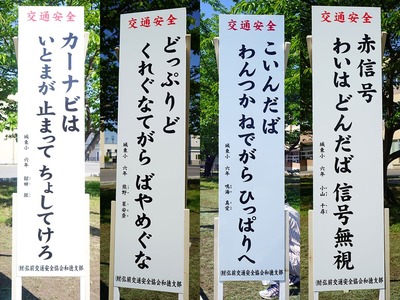 交通安全
カーナビは
いとまが 止まって ちょしてけろ
城東小 六年
(財)弘前交通安全協会和徳支部
交通安全
どっぷりど
くれぐなてがら ばやめぐな
城東小 六年
(財)弘前交通安全協会和徳支部
交通安全
こいんだば
わんつか ねでがら ひっぱりへ
城東小 六年 鳴海
(財)弘前交通安全協会和徳支部
交通安全
赤信号
わいは どんだば 信号無視
城東小 六年 小山 千尋
(財)弘前交通安全協会和徳支部